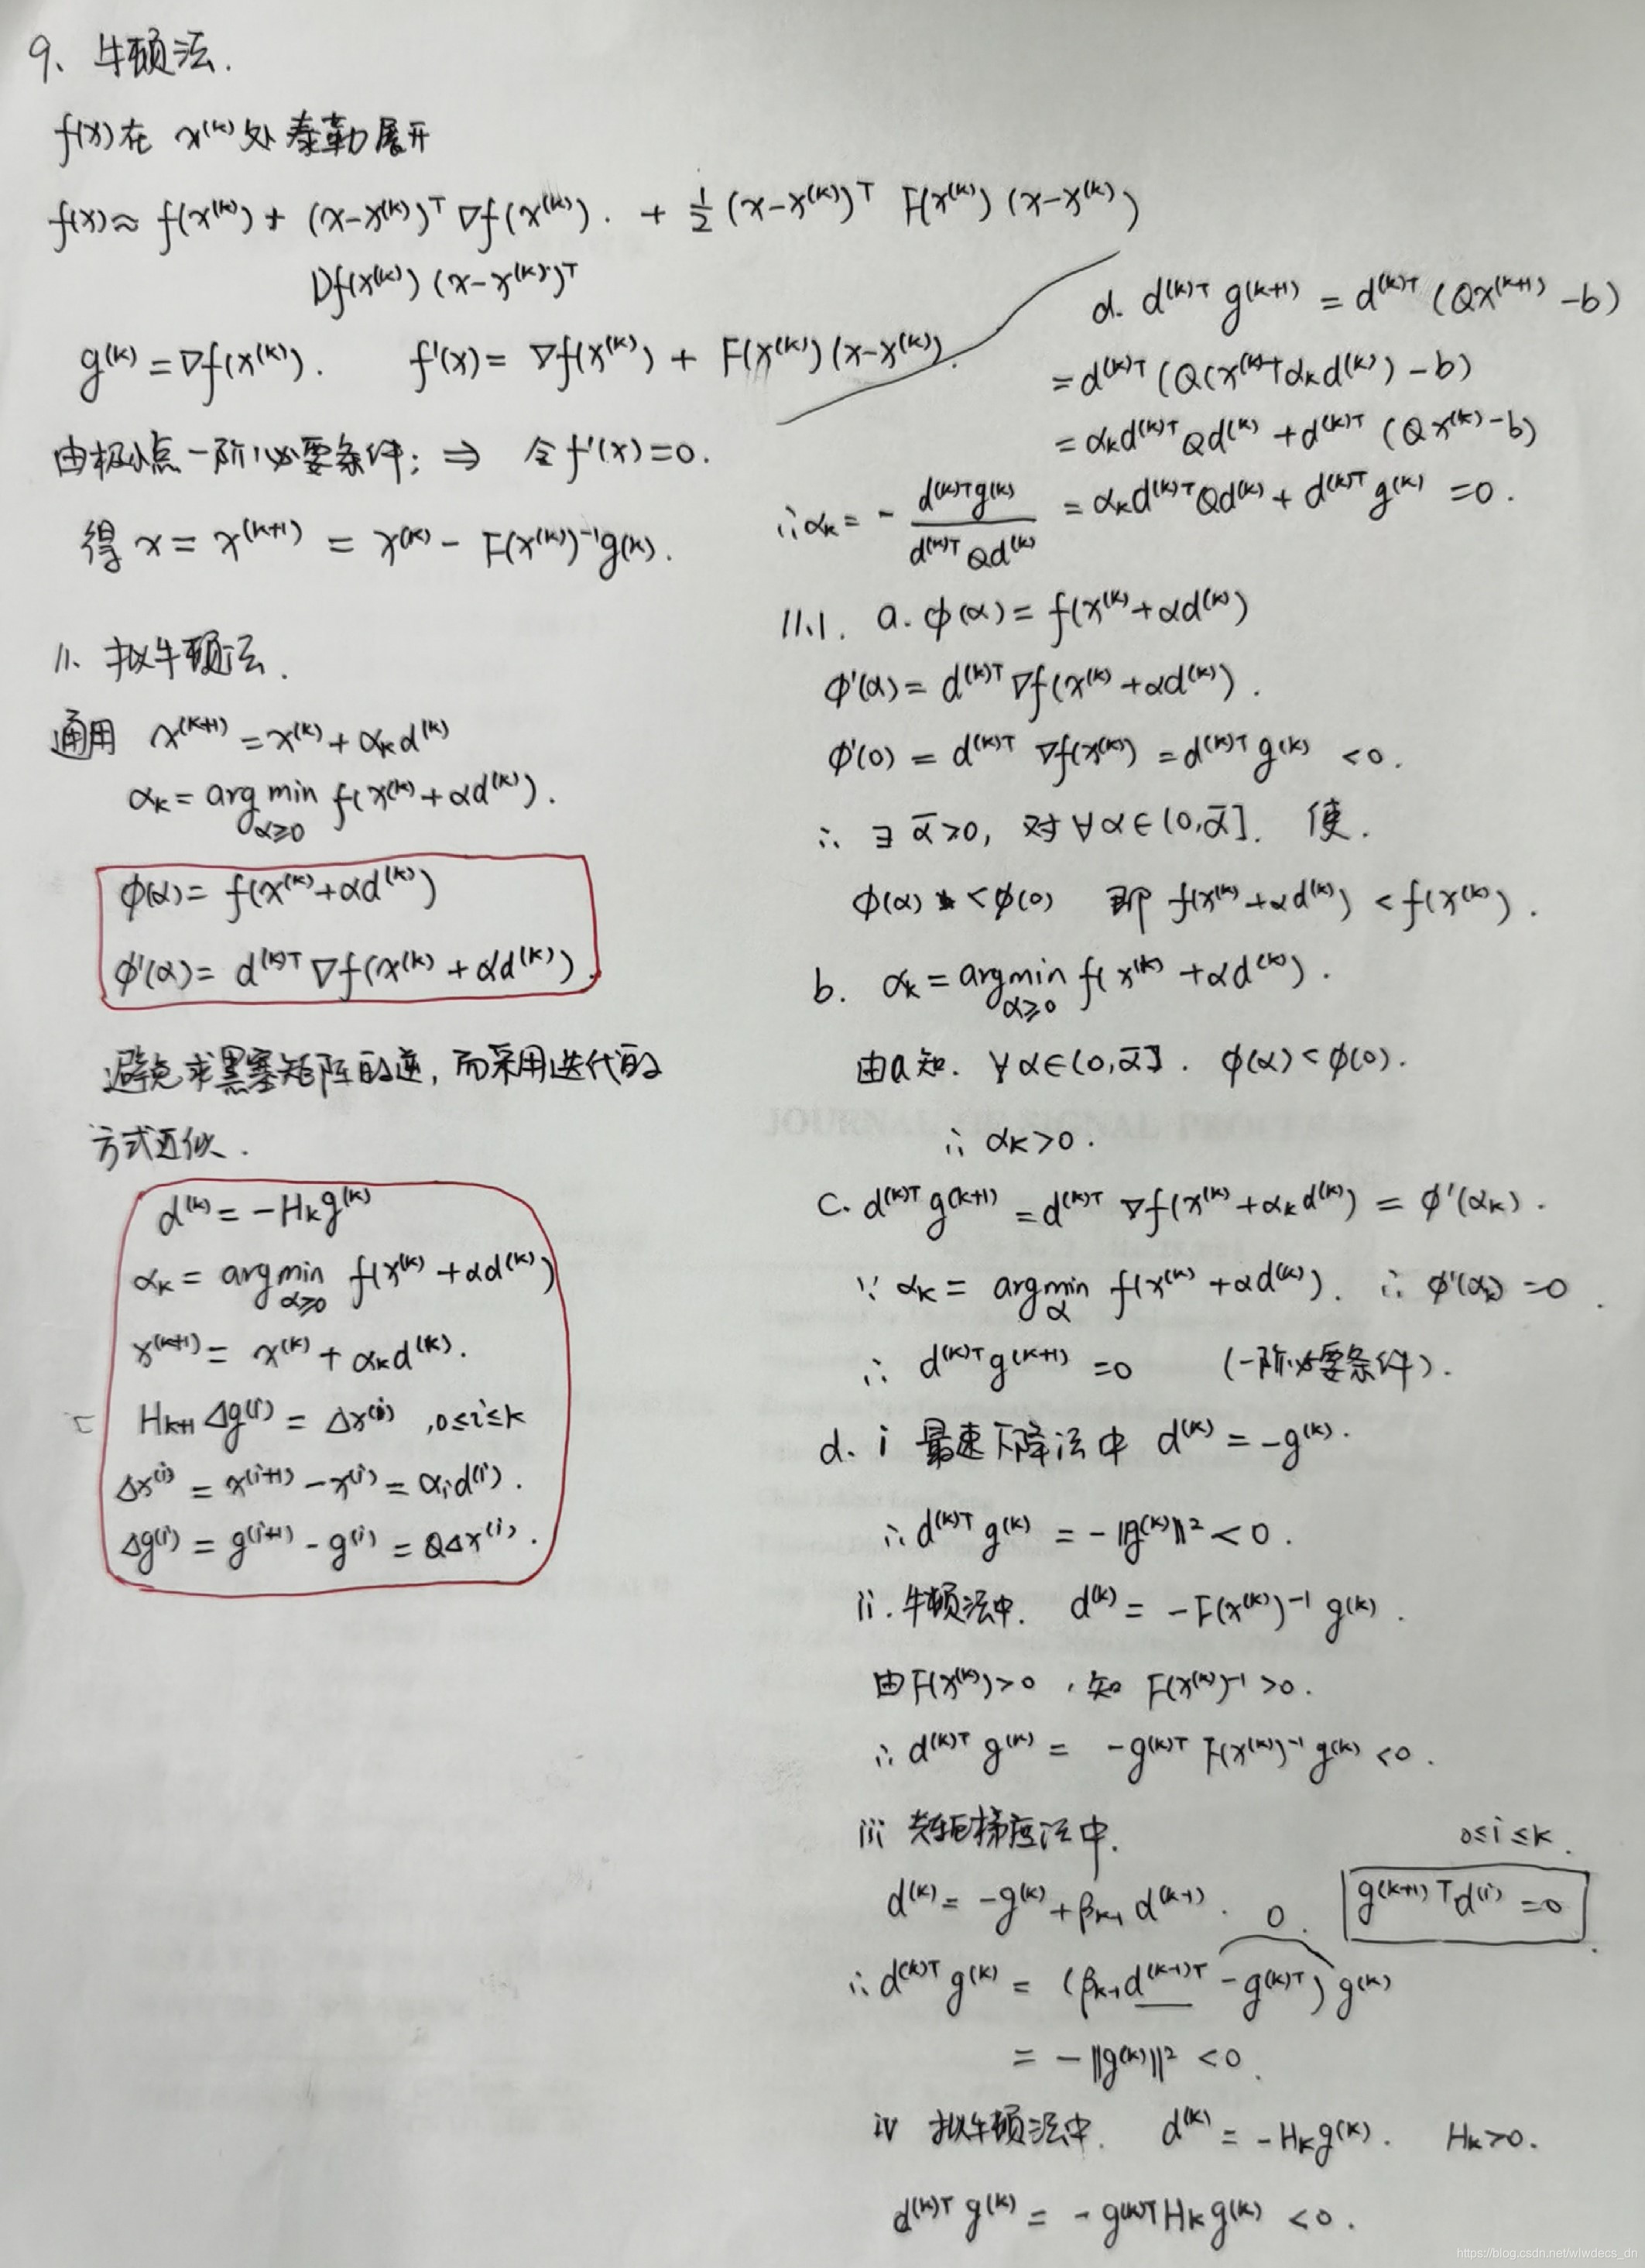 9、牛顿法.
f(x)在 x⁽ᵏ⁾处泰勒展开
f(x)≈ f(x⁽ᵏ⁾) + (x-x⁽ᵏ⁾)ᵀ ∇f(x⁽ᵏ⁾). + 1/2 (x-x⁽ᵏ⁾)ᵀ F(x⁽ᵏ⁾) (x-x⁽ᵏ⁾)
Df(x⁽ᵏ⁾) (x-x⁽ᵏ⁾)ᵀ
g⁽ᵏ⁾ = ∇f(x⁽ᵏ⁾). f'(x) = ∇f(x⁽ᵏ⁾) + F(x⁽ᵏ⁾)(x-x⁽ᵏ⁾).
由极小点一阶必要条件; ⇒ 令 f'(x)=0.
得 x = x⁽ᵏ⁺¹⁾ = x⁽ᵏ⁾ - F(x⁽ᵏ⁾)⁻¹g⁽ᵏ⁾.
11、拟牛顿法.
通用 x⁽ᵏ⁺¹⁾ = x⁽ᵏ⁾ + αₖd⁽ᵏ⁾
αₖ = arg min f(x⁽ᵏ⁾ + αd⁽ᵏ⁾).
α≥0
φ(α) = f(x⁽ᵏ⁾+αd⁽ᵏ⁾)
φ'(α) = d⁽ᵏ⁾ᵀ ∇f(x⁽ᵏ⁾ + αd⁽ᵏ⁾).
避免求黑塞矩阵的逆,而采用迭代的
方式近似.
d⁽ᵏ⁾ = -Hₖg⁽ᵏ⁾
αₖ = arg min f(x⁽ᵏ⁾ + αd⁽ᵏ⁾)
α≥0
x⁽ᵏ⁺¹⁾ = x⁽ᵏ⁾ + αₖd⁽ᵏ⁾.
Hₖ₊₁ Δg⁽ⁱ⁾ = Δx⁽ⁱ⁾ ,0≤i≤k
Δx⁽ⁱ⁾ = x⁽ⁱ⁺¹⁾ - x⁽ⁱ⁾ = αᵢd⁽ⁱ⁾.
Δg⁽ⁱ⁾ = g⁽ⁱ⁺¹⁾ - g⁽ⁱ⁾ = QΔx⁽ⁱ⁾.
d. d⁽ᵏ⁾ᵀ g⁽ᵏ⁺¹⁾ = d⁽ᵏ⁾ᵀ (Qx⁽ᵏ⁺¹⁾ - b)
= d⁽ᵏ⁾ᵀ (Q(x⁽ᵏ⁾+αₖd⁽ᵏ⁾) - b)
= αₖd⁽ᵏ⁾ᵀ Qd⁽ᵏ⁾ + d⁽ᵏ⁾ᵀ (Qx⁽ᵏ⁾-b)
= αₖd⁽ᵏ⁾ᵀQd⁽ᵏ⁾ + d⁽ᵏ⁾ᵀ g⁽ᵏ⁾ = 0.
∴ αₖ = - d⁽ᵏ⁾ᵀg⁽ᵏ⁾ / d⁽ᵏ⁾ᵀQd⁽ᵏ⁾
11.1. a. φ(α) = f(x⁽ᵏ⁾+αd⁽ᵏ⁾)
φ'(α) = d⁽ᵏ⁾ᵀ ∇f(x⁽ᵏ⁾+αd⁽ᵏ⁾).
φ'(0) = d⁽ᵏ⁾ᵀ ∇f(x⁽ᵏ⁾) = d⁽ᵏ⁾ᵀ g⁽ᵏ⁾ <0.
∴ ∃ ᾱ>0, 对∀α∈(0,ᾱ]. 使.
φ(α) < φ(0) 即 f(x⁽ᵏ⁾+αd⁽ᵏ⁾) < f(x⁽ᵏ⁾).
b. αₖ = arg min f(x⁽ᵏ⁾ + αd⁽ᵏ⁾).
α≥0
由a知. ∀α∈(0,ᾱ]. φ(α)<φ(0).
∴ αₖ>0.
C. d⁽ᵏ⁾ᵀ g⁽ᵏ⁺¹⁾ = d⁽ᵏ⁾ᵀ ∇f(x⁽ᵏ⁾+αₖd⁽ᵏ⁾) = φ'(αₖ).
∵ αₖ = arg min f(x⁽ᵏ⁾+αd⁽ᵏ⁾). ∴ φ'(αₖ) = 0.
α
∴ d⁽ᵏ⁾ᵀg⁽ᵏ⁺¹⁾ = 0 (一阶必要条件).
d. i 最速下降法中 d⁽ᵏ⁾ = -g⁽ᵏ⁾.
∴ d⁽ᵏ⁾ᵀ g⁽ᵏ⁾ = -‖g⁽ᵏ⁾‖² < 0.
ii. 牛顿法中. d⁽ᵏ⁾ = -F(x⁽ᵏ⁾)⁻¹ g⁽ᵏ⁾.
由F(x⁽ᵏ⁾)>0, 知 F(x⁽ᵏ⁾)⁻¹>0.
∴ d⁽ᵏ⁾ᵀ g⁽ᵏ⁾ = -g⁽ᵏ⁾ᵀ F(x⁽ᵏ⁾)⁻¹ g⁽ᵏ⁾ <0.
iii 共轭梯度法中.
0≤i≤k.
d⁽ᵏ⁾ = -g⁽ᵏ⁾ + βₖ₋₁ d⁽ᵏ⁻¹⁾. 0. g⁽ᵏ⁺¹⁾ᵀd⁽ⁱ⁾ = 0
∴ d⁽ᵏ⁾ᵀ g⁽ᵏ⁾ = (βₖ₋₁d⁽ᵏ⁻¹⁾ᵀ - g⁽ᵏ⁾ᵀ) g⁽ᵏ⁾
= -‖g⁽ᵏ⁾‖² < 0.
iv 拟牛顿法中. d⁽ᵏ⁾ = -Hₖg⁽ᵏ⁾. Hₖ>0.
d⁽ᵏ⁾ᵀ g⁽ᵏ⁾ = -g⁽ᵏ⁾ᵀHₖg⁽ᵏ⁾ <0.
https://blog.csdn.net/wiwdecs_dn